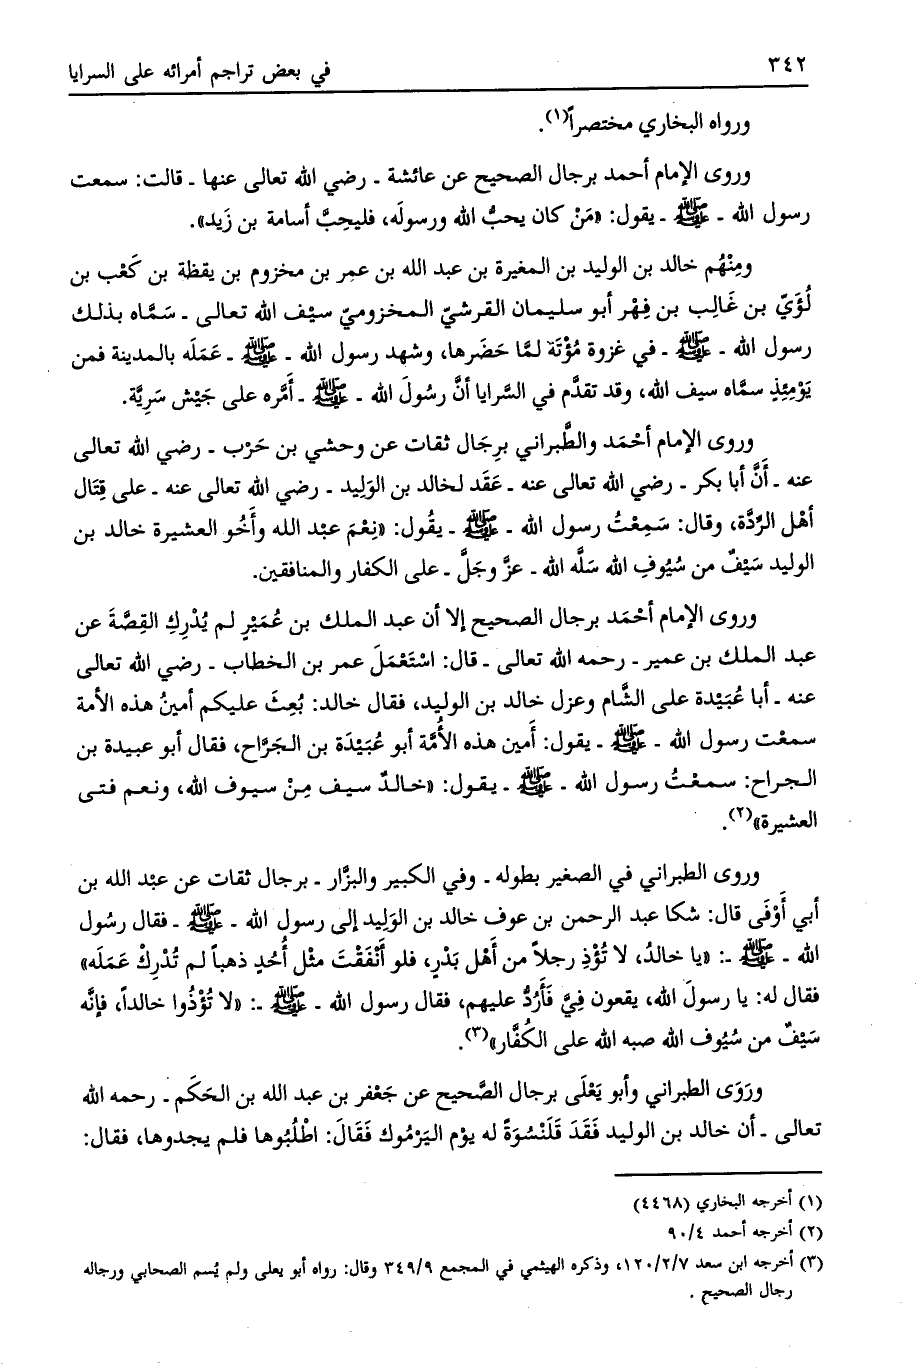 ٣٤٢ في بعض تراجم أمرائه على السرايا
ورواه البخاري مختصراً(١).
وروى الإمام أحمد برجال الصحيح عن عائشة ـ رضي الله تعالى عنها ـ قالت: سمعت
رسول الله ـ ﷺ ـ يقول: «مَنْ كان يحبُّ الله ورسولَه، فليحِبَّ أسامة بن زَيد».
ومِنْهُم خالد بن الوليد بن المغيرة بن عبد الله بن عمر بن مخزوم بن يقظة بن كَعْب بن
لُؤَيّ بن غَالِب بن فِهْر أبو سليمان القرشيّ المخزوميّ سيْف الله تعالى ـ سَمَّاه بذلك
رسول الله ـ ﷺ ـ في غزوة مُؤْتَة لمَّا حَضَرها، وشهد رسول الله ـ ﷺ ـ عَمَلَه بالمدينة فمن
يَوْمِئِذٍ سمَّاه سيف الله، وقد تقدَّم في السَّرايا أنَّ رسُولَ الله ـ ﷺ ـ أَمَّره على جَيْش سَرِيَّة.
وروى الإمام أحْمَد والطَّبراني برِجَال ثقات عن وحشي بن حَرْب ـ رضي الله تعالى
عنه ـ أَنَّ أبا بكر ـ رضي الله تعالى عنه ـ عَقَد لخالد بن الوَليد ـ رضي الله تعالى عنه ـ على قِتَال
أهْل الرِّدَّة، وقال: سَمِعْتُ رسول الله ـ ﷺ ـ يقُول: «نِعْمَ عبْد الله وأَخُو العشيرة خالد بن
الوليد سَيْفٌ من سُيُوفِ الله سَلَّه الله ـ عزَّ وجَلَّ ـ على الكفار والمنافقين.
وروى الإمام أحْمَد برجال الصحيح إلا أن عبد الملك بن عُمَيْرٍ لم يُدْرِكِ القِصَّةَ عن
عبد الملك بن عمير ـ رحمه الله تعالى ـ قال: اسْتَعْمَلَ عمر بن الخطاب ـ رضي الله تعالى
عنه ـ أبا عُبَيْدة على الشَّام وعزل خالد بن الوليد، فقال خالد: بُعِثَ عليكم أمينُ هذه الأمة
سمعْت رسول الله ـ ﷺ ـ يقول: أَمين هذه الأُمَّة أبو عُبَيْدَة بن الجَرَّاح، فقال أبو عبيدة بن
الجراح: سمعْتُ رسول الله ـ ﷺ ـ يقول: «خالدٌ سيف مِنْ سيوف الله، ونعم فتى
العشيرة»(٢).
وروى الطبراني في الصغير بطوله ـ وفي الكبير والبزَّار ـ برجال ثقات عن عبْد الله بن
أبي أَوْفَى قال: شكا عبد الرحمن بن عوف خالد بن الوَليد إلى رسول الله ـ ﷺ ـ فقال رسُول
الله ـ ﷺ ـ: «يا خالدُ، لا تُؤْذِ رجلاً من أَهْل بَدْرٍ، فلو أَنْفَقْتَ مثْل أُحُدٍ ذهباً لم تُدْرِكْ عَمَلَه»
فقال له: يا رسولَ الله، يقعون فِيَّ فَأَرُدُّ عليهم، فقال رسول الله ـ ﷺ ـ: «لا تُؤْذُوا خالداً، فإنَّه
سَيْفٌ من سُيُوف الله صبه الله على الكُفَّار»(٣).
ورَوَى الطبراني وأبو يَعْلَى برجال الصَّحيح عن جَعْفر بن عبد الله بن الحَكَم ـ رحمه الله
تعالى ـ أن خالد بن الوليد فَقَدَ قَلَنْسُوَةً له يوْم اليَرْمُوك فَقَالَ: اطْلُبُوها فلم يجدوها، فقال:
(١) أخرجه البخاري (٤٤٦٨)
(٢) أخرجه أحمد ٩٠/٤
(٣) أخرجه ابن سعد ١٢٠/٢/٧، وذكره الهيثمي في المجمع ٣٤٩/٩ وقال: رواه أبو يعلى ولم يُسم الصحابي ورجاله
رجال الصحيح .